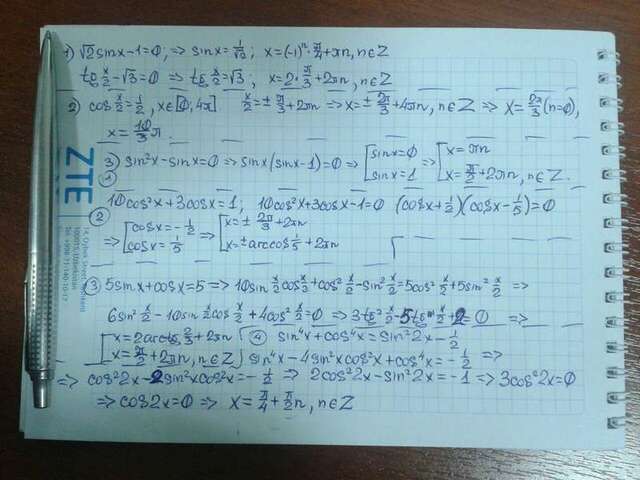 1) √2 sinx-1=0; => sinx=1/√2; x=(-1)ⁿ·π/4+πn, n∈Z
tg x/2-√3=0 => tg x/2=√3; x=2·π/3+2πn, n∈Z
2) cos x/2=1/2, x∈[0;4π] x/2=±π/3+2πn => x=±2π/3+4πn, n∈Z => x=2π/3(n=0),
x=10/3π.
3) sin²x-sinx=0 => sinx(sinx-1)=0 => [sinx=0 => [x=πn
① sinx=1 x=π/2+2πn, n∈Z.
10cos²x+3cosx=1; 10cos²x+3cosx-1=0 (cosx+1/2)(cosx-1/5)=0
② => [cosx=-1/2 => [x=±2π/3+2πn
cosx=1/5 x=±arccos1/5+2πn
③ 5sinx+cosx=5 => 10sin x/2 cos x/2+cos² x/2-sin² x/2=5cos² x/2+5sin² x/2 =>
6sin² x/2-10sin x/2 cos x/2+4cos² x/2=0 => 3tg² x/2-5tg x/2+2=0 =>
[x=2arctg 2/3+2πn ④ sin⁴x+cos⁴x=sin²2x-1/2
x=π/2+2πn, n∈Z] sin⁴x-4sin²xcos²x+cos⁴x=-1/2 =>
=> cos²2x-2sin²xcos²x=-1/2 => 2cos²2x-sin²2x=-1 => 3cos²2x=0
=> cos2x=0 => x=π/4+π/2n, n∈Z
ZTE